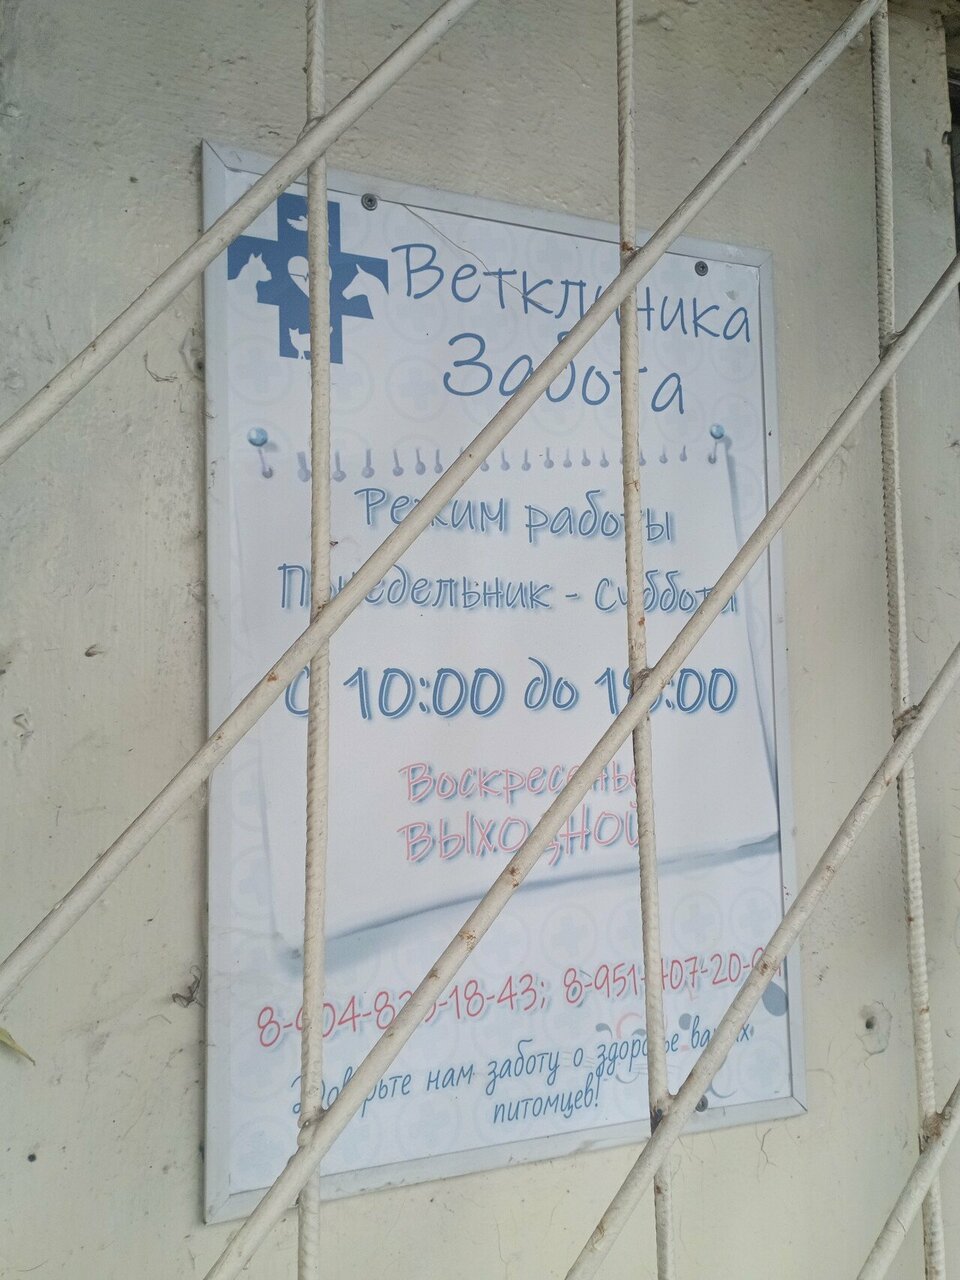 Ветклиника
Забота
Режим работы
Понедельник - Суббота
С 10:00 до
Воскресенье
ВЫХОДНОЙ
Доверьте нам заботу о здоровье ваших
питомцев!